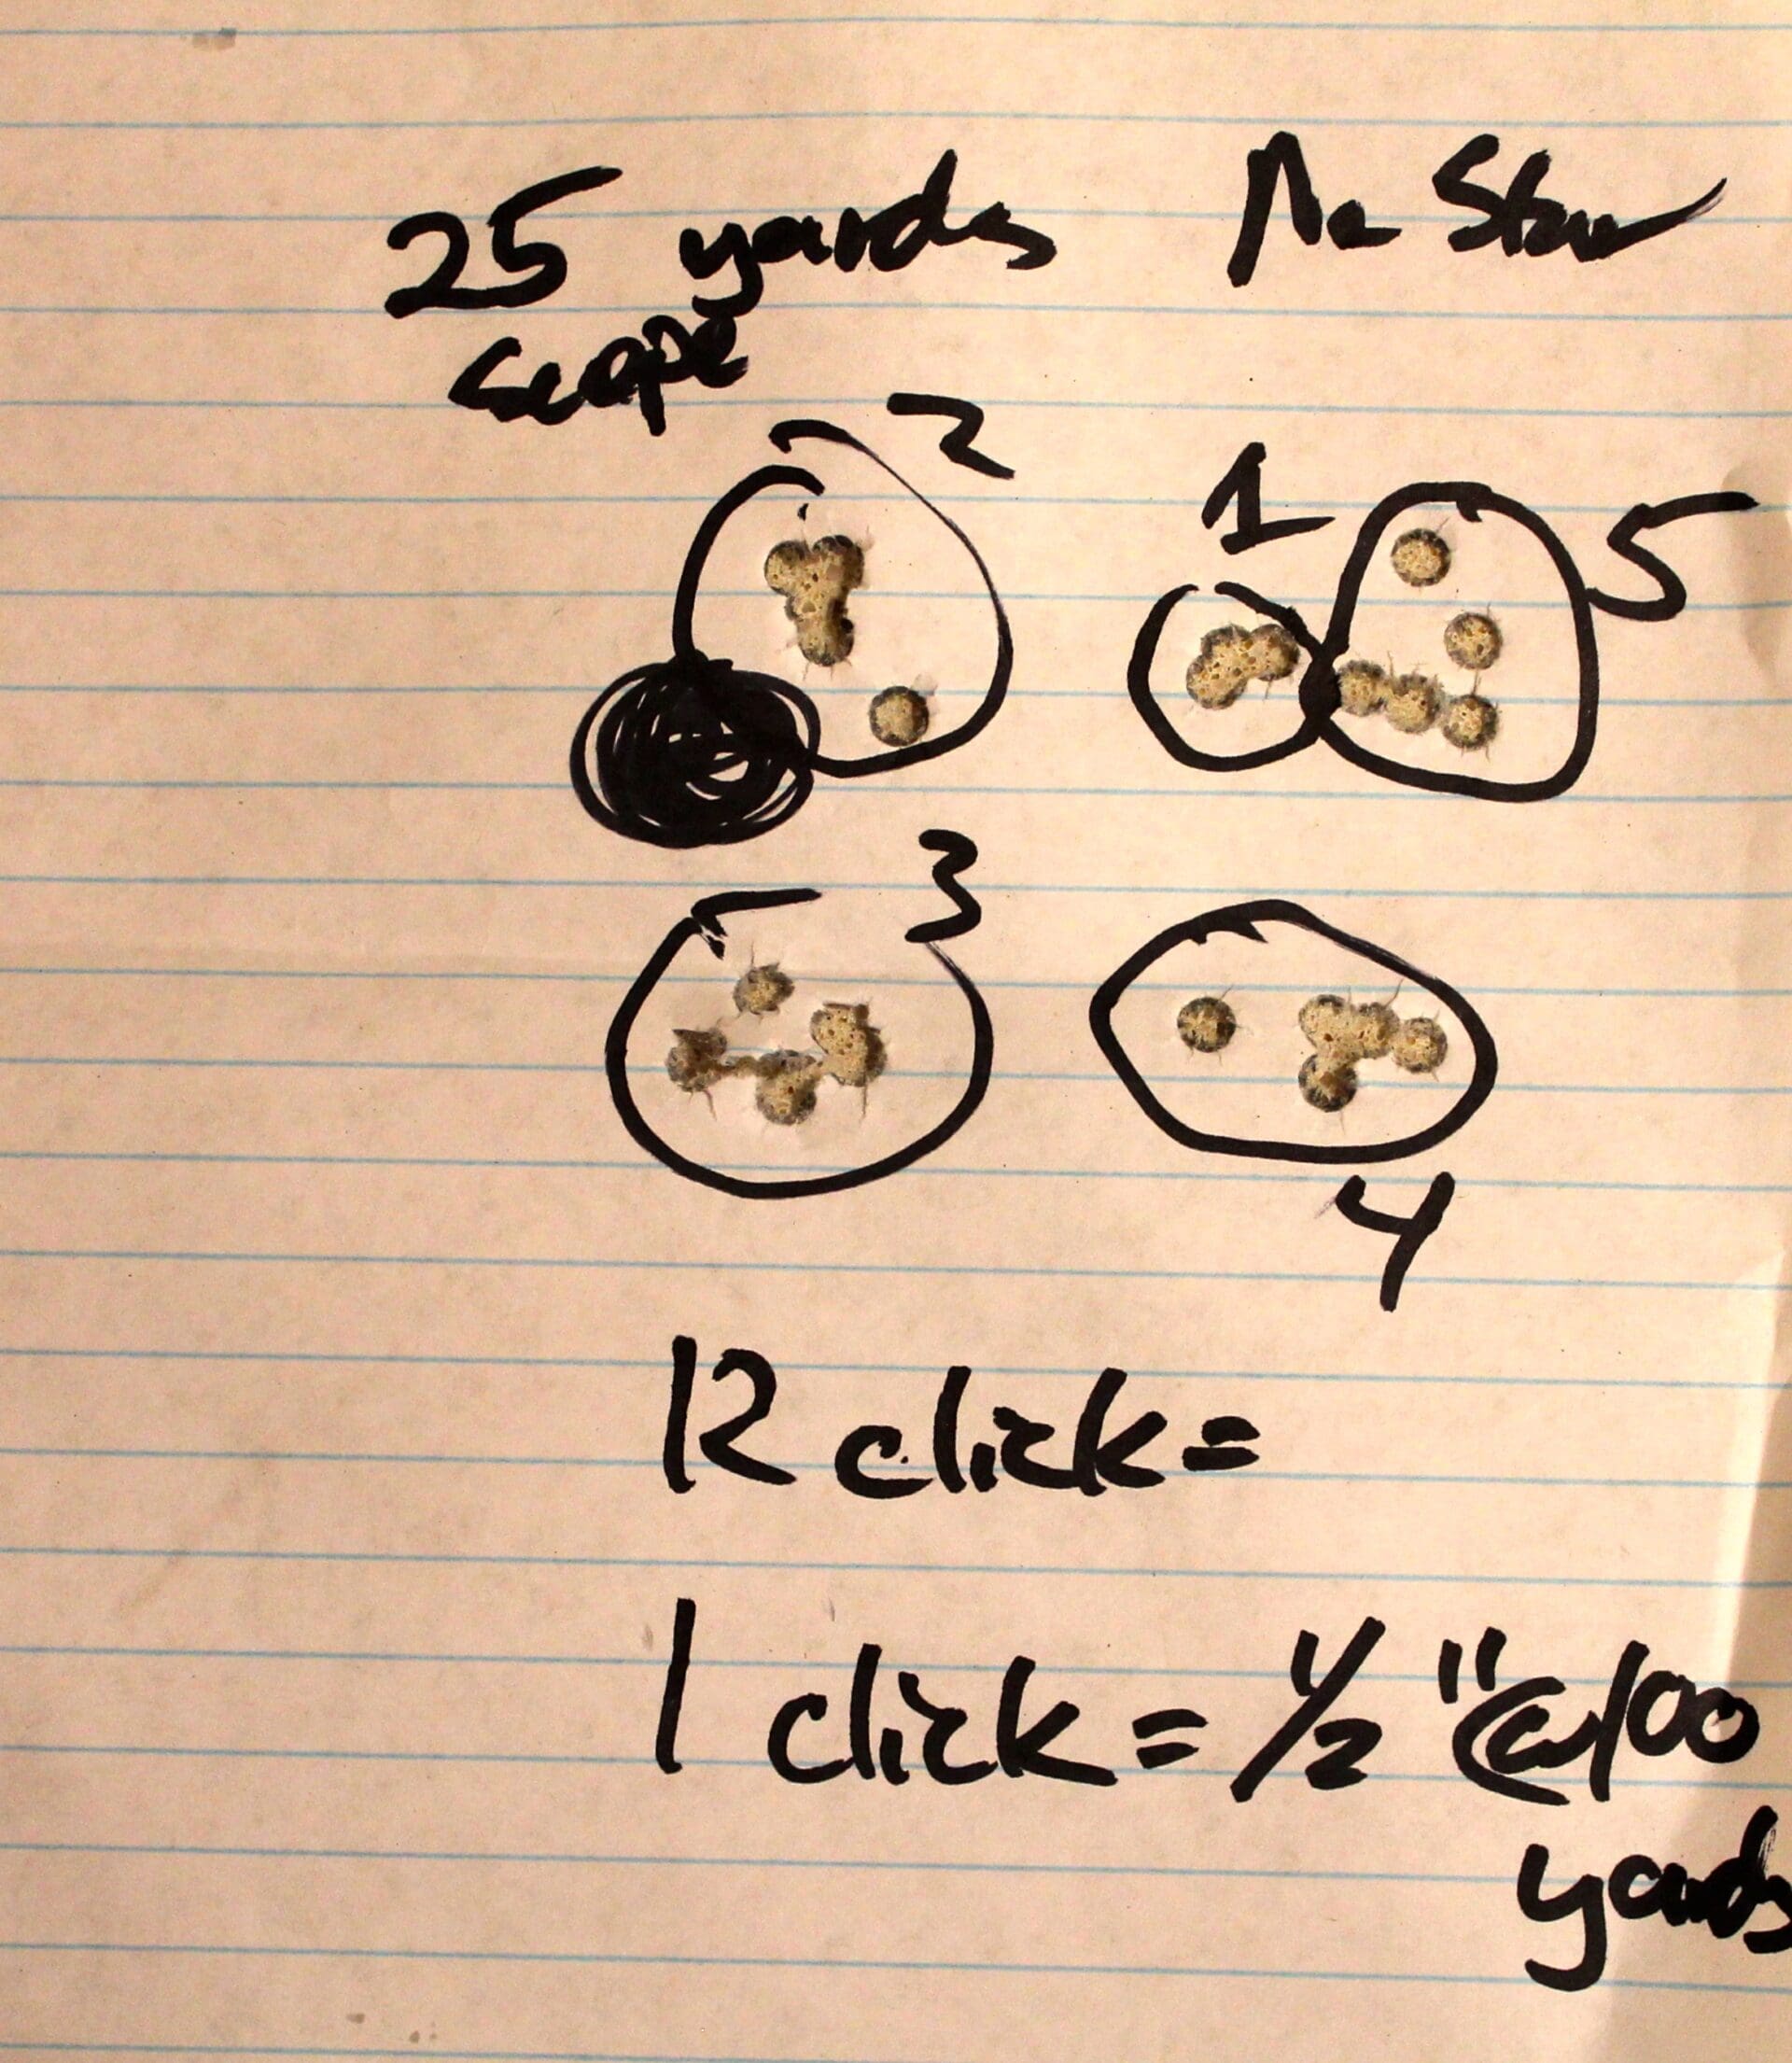 25 yards
scope
2
1
5
3
4
12 click=
1 click = 1/2 "@100
yards